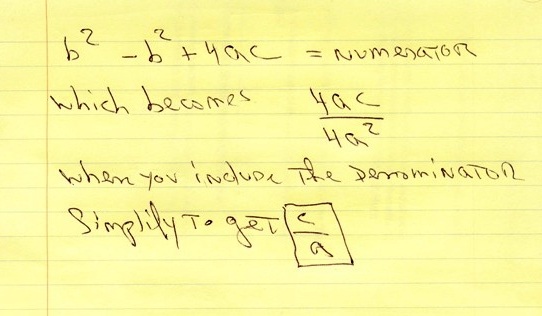 b² - b² + 4ac = Numerator
which becomes 4ac/4a²
when you include the Denominator
Simplify To get c/a